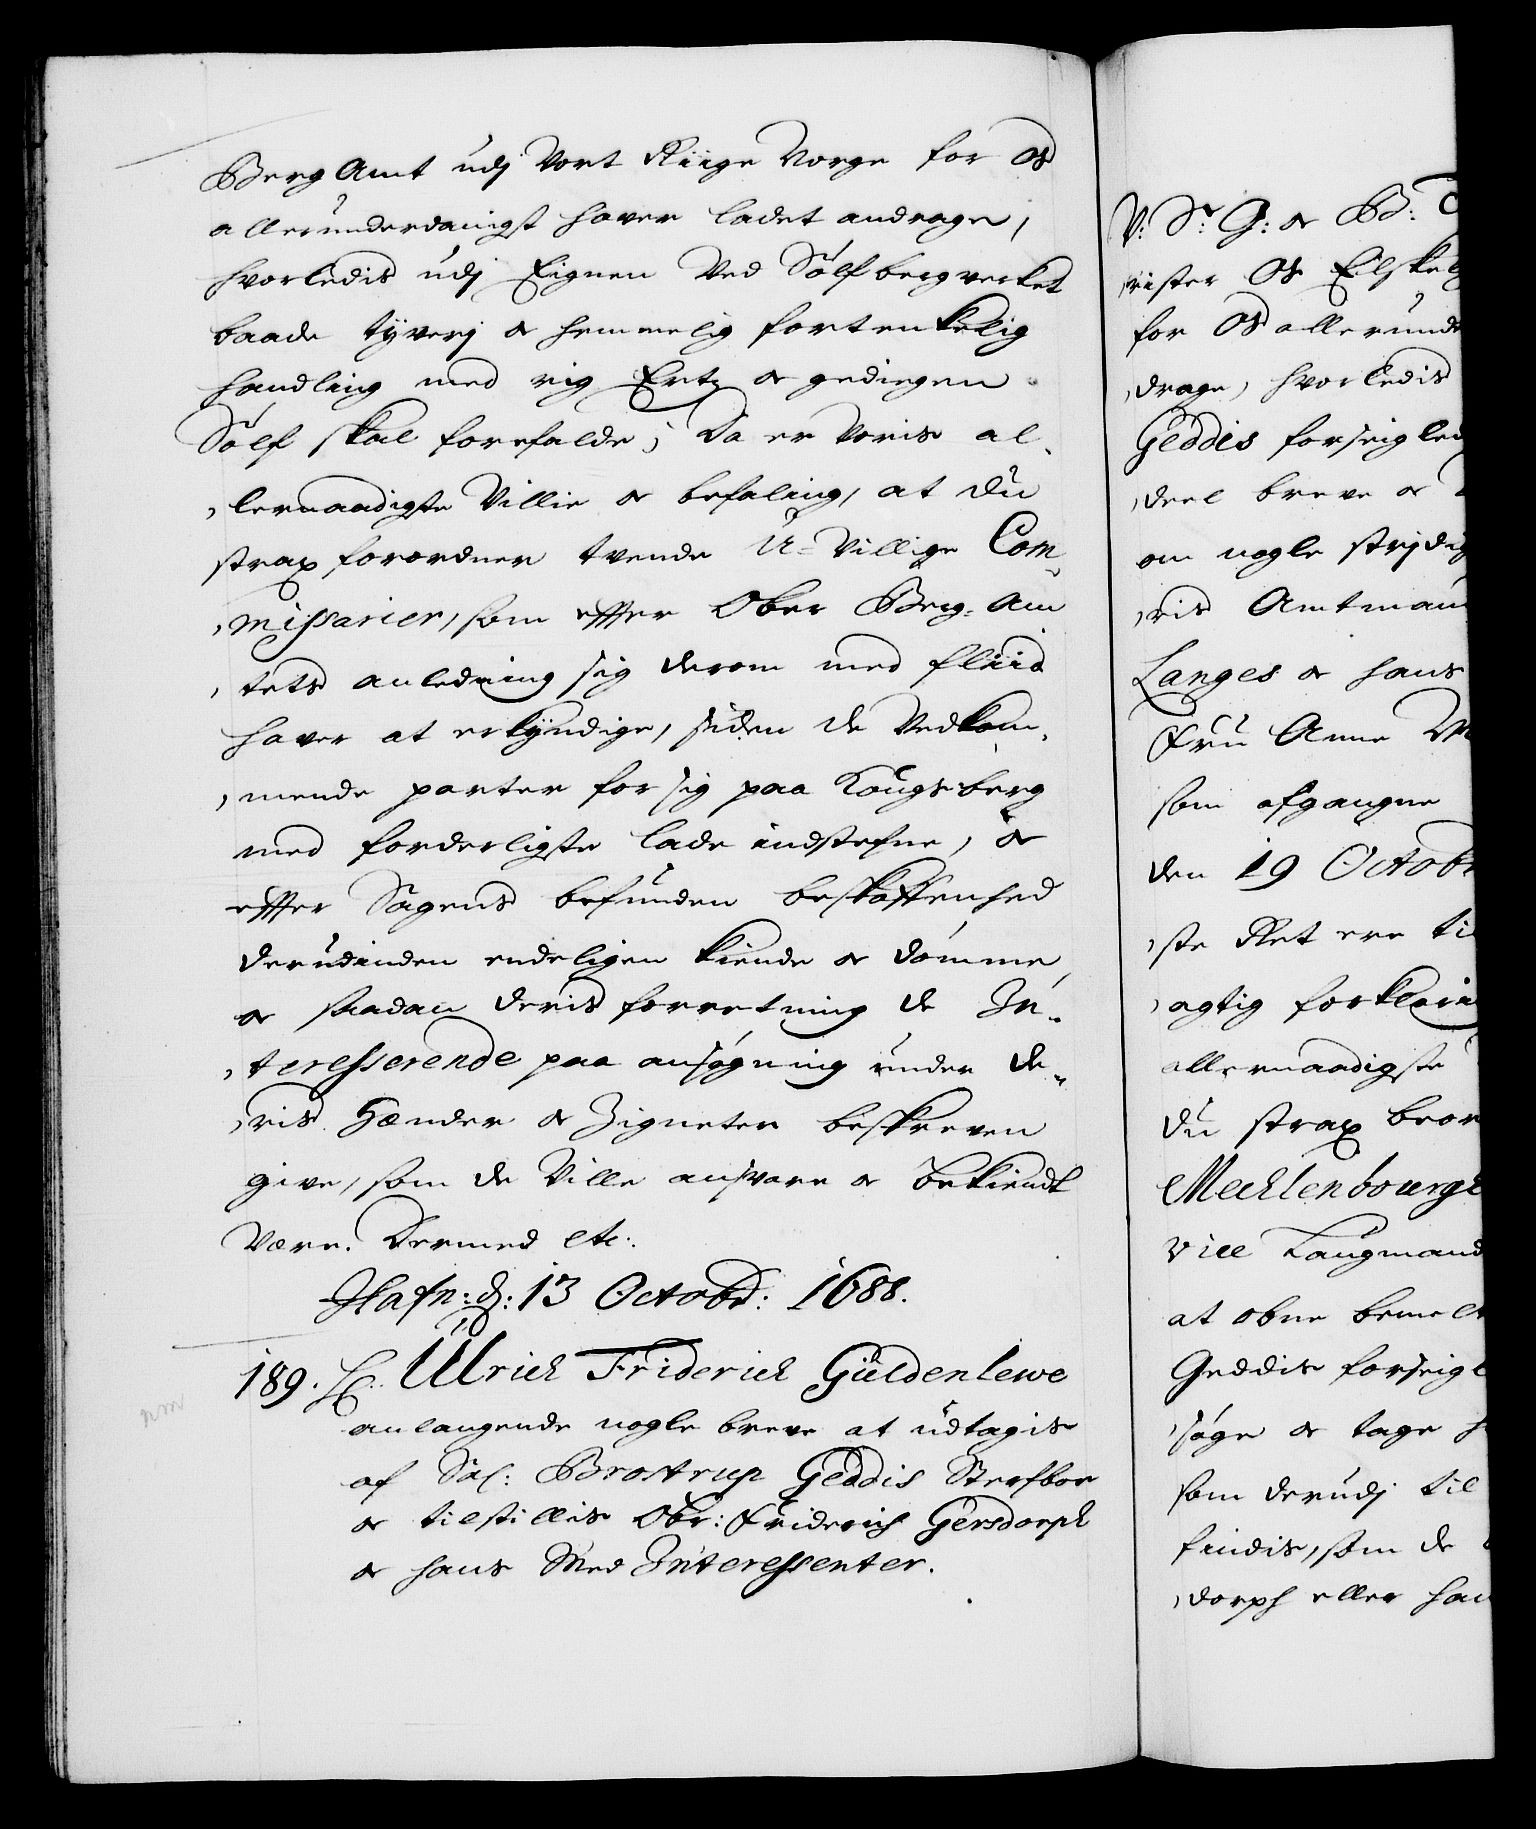 Berg Amt udj Vort Riige Norge for Os
allerunderdanigst hafver ladet andrage,
hvorledis udj Eignen Ved Sølfbergverket
baade tyverj & hemmelig fortenkelig
handling med rig Ertz & gediegen
Sølf skal forefalde; Da er Voris al-
lernaadigste Villie & befaling, at du
strax forordner tvende U-Villige Com-
missarier, som effter Ober Berg-Am
tets anledning sig derom med fliid
haver at erkyndige, siden de Vedkom-
mende parter for sig paa Kongsberg
med forderligste lade indstefne, &
effter Sagens befunden beskaffenhed
derudinden endeligen kiende & dømme,
& saadan deris forretning de In-
teresserende paa ansøgning under de-
ris Hænder & Zigneter beskreven
give, som de Ville ansvare & bekiendt
Være. Dermed etc:.
Hafn: d: 13 Octobr: 1688.
189. Ulrich Friderich Güldenlewe
anlangende nogle breve at udtagis
af Sal: Brostrup Geddis Sterfboe
& tilstillis Obr: Friderich Gersdorph
& hans Med Interessenter.
nm
V: Sr: G: & B:
rister Os Elskel
for Os allerunde
drage, hvorledis
Geddes forseigle
deel breve &
om nogle strjdig
ris Amtman
Langes & hans
Fru Anne M
som afgangne
den 19 Octobr
ste Ret ere ti
agtig forklari
allernaadigste
du strax beor
Mechlenbourg
vice Laugmand
at obne bemelt
Geddis forseigl
søge & tage h
som derudj til
findis, som de
dorph eller han